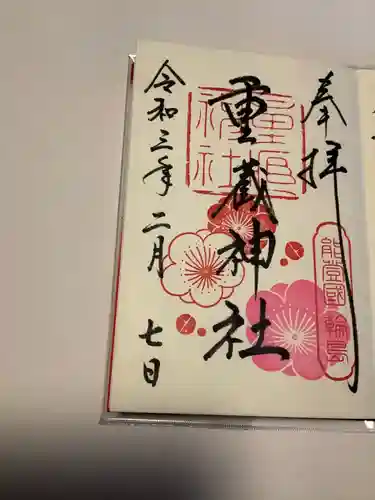 奉拝
能登國輪島
重蔵神社
令和三年二月七日